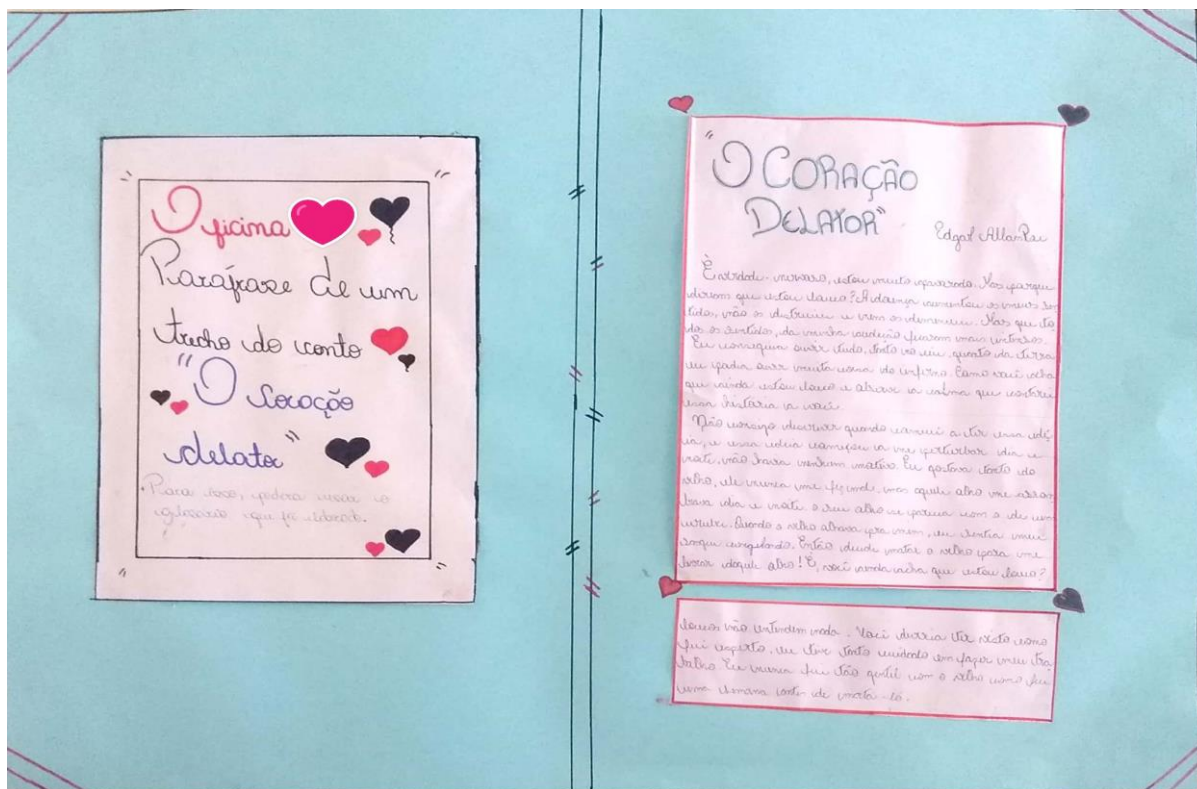 Oficina
Paráfrase de um
trecho do conto
"O Coração
delator"
Para isso, poderá usar o
glossário que foi elaborado.
"O CORAÇÃO
DELATOR"
Edgar Allan Poe
È verdade - nervoso, estou muito apavorado. Mas porque
diriam que estou louco? A doença aumentou os meus sen
tidos, não os destruiu e nem os demenuiu. Mas que to
dos os sentidos, da minha audição ficaram mais intensos.
Eu conseguia ouvir tudo, tanto no céu, quanto da terra
eu podia ouvir muita coisa do inferno. Como você acha
que ainda estou louco e observe a calma que contarei
essa história a você.
Não consigo descrever quando comecei a ter essa idé
ia, e essa ideia começou a me perturbar dia e
noite, não havia nenhum motivo. Eu gostava tanto do
velho, ele nunca me fez nada, mas aquele olho me assom
brava dia e noite. o seu olho se parecia com o de um
urubu. Quando o velho olhava pra mim, eu sentia meu
sangue congelando. Então decide matar o velho para me
livrar daquele olho! E, você ainda acha que estou louco?
loucos não entendem nada. Você deveria ter visto como
fui esperto, eu tive tanto cuidado em fazer meu tra
balho. Eu nunca fui tão gentil com o velho como fui
uma semana antes de mata-ló.